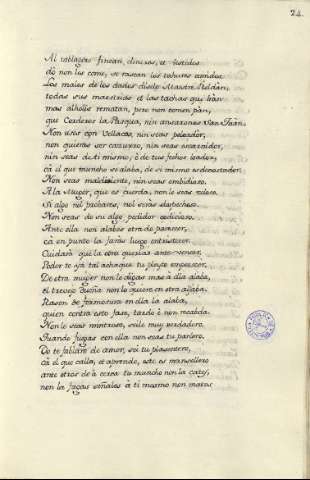 24.
Al tablagero fincan, dineros, et vestidos
dò non les come, se rascan los tahures cuydos
Los males de los dados disde Maestre Roldan,
todas sus maestrias et las tachas que bran
mas alholis rematan, pero non comen pan,
que Corderos la Pasqua, nin ansarones San Juan,
Non uses con Vellacos, nin seas peleador,
non quieras ser cazurro, nin seas escarnidor,
nin seas de ti mismo, è de tus fechos loador,
cà el que muncho se alaba, de si mismo es denostador.
Non seas maldisiente, nin seas embidioso,
A la Muger, que es cuerda, non le seas zeloso
Si algo nol probares, nol seras despechoso
Non seas de su algo pedidor codicioso.
Ante ella non alabes otra de parecer,
cà en punto la farás luego entristecer
Cuidarà que la otra querias ante vencer,
Poder te yà tal achaque tu pleyto empeescer,
De otra muger non le digas mas à ella alaba,
el trevejo dueña non lo quiere en otra aljaba,
Rason de fermosura en ella la alaba,
quien contra esto fase, tarde ò non recabda.
Non le seas mintroso, seile muy verdadero
Quando fugas con ella non seas tu parlero.
Do te fablare de amor, sei tu plasentero,
cà el que calla, et aprende, este es mansellero
ante otros de à cerca tu muncho non la cates,
non la fagas señales à ti mismo non mates